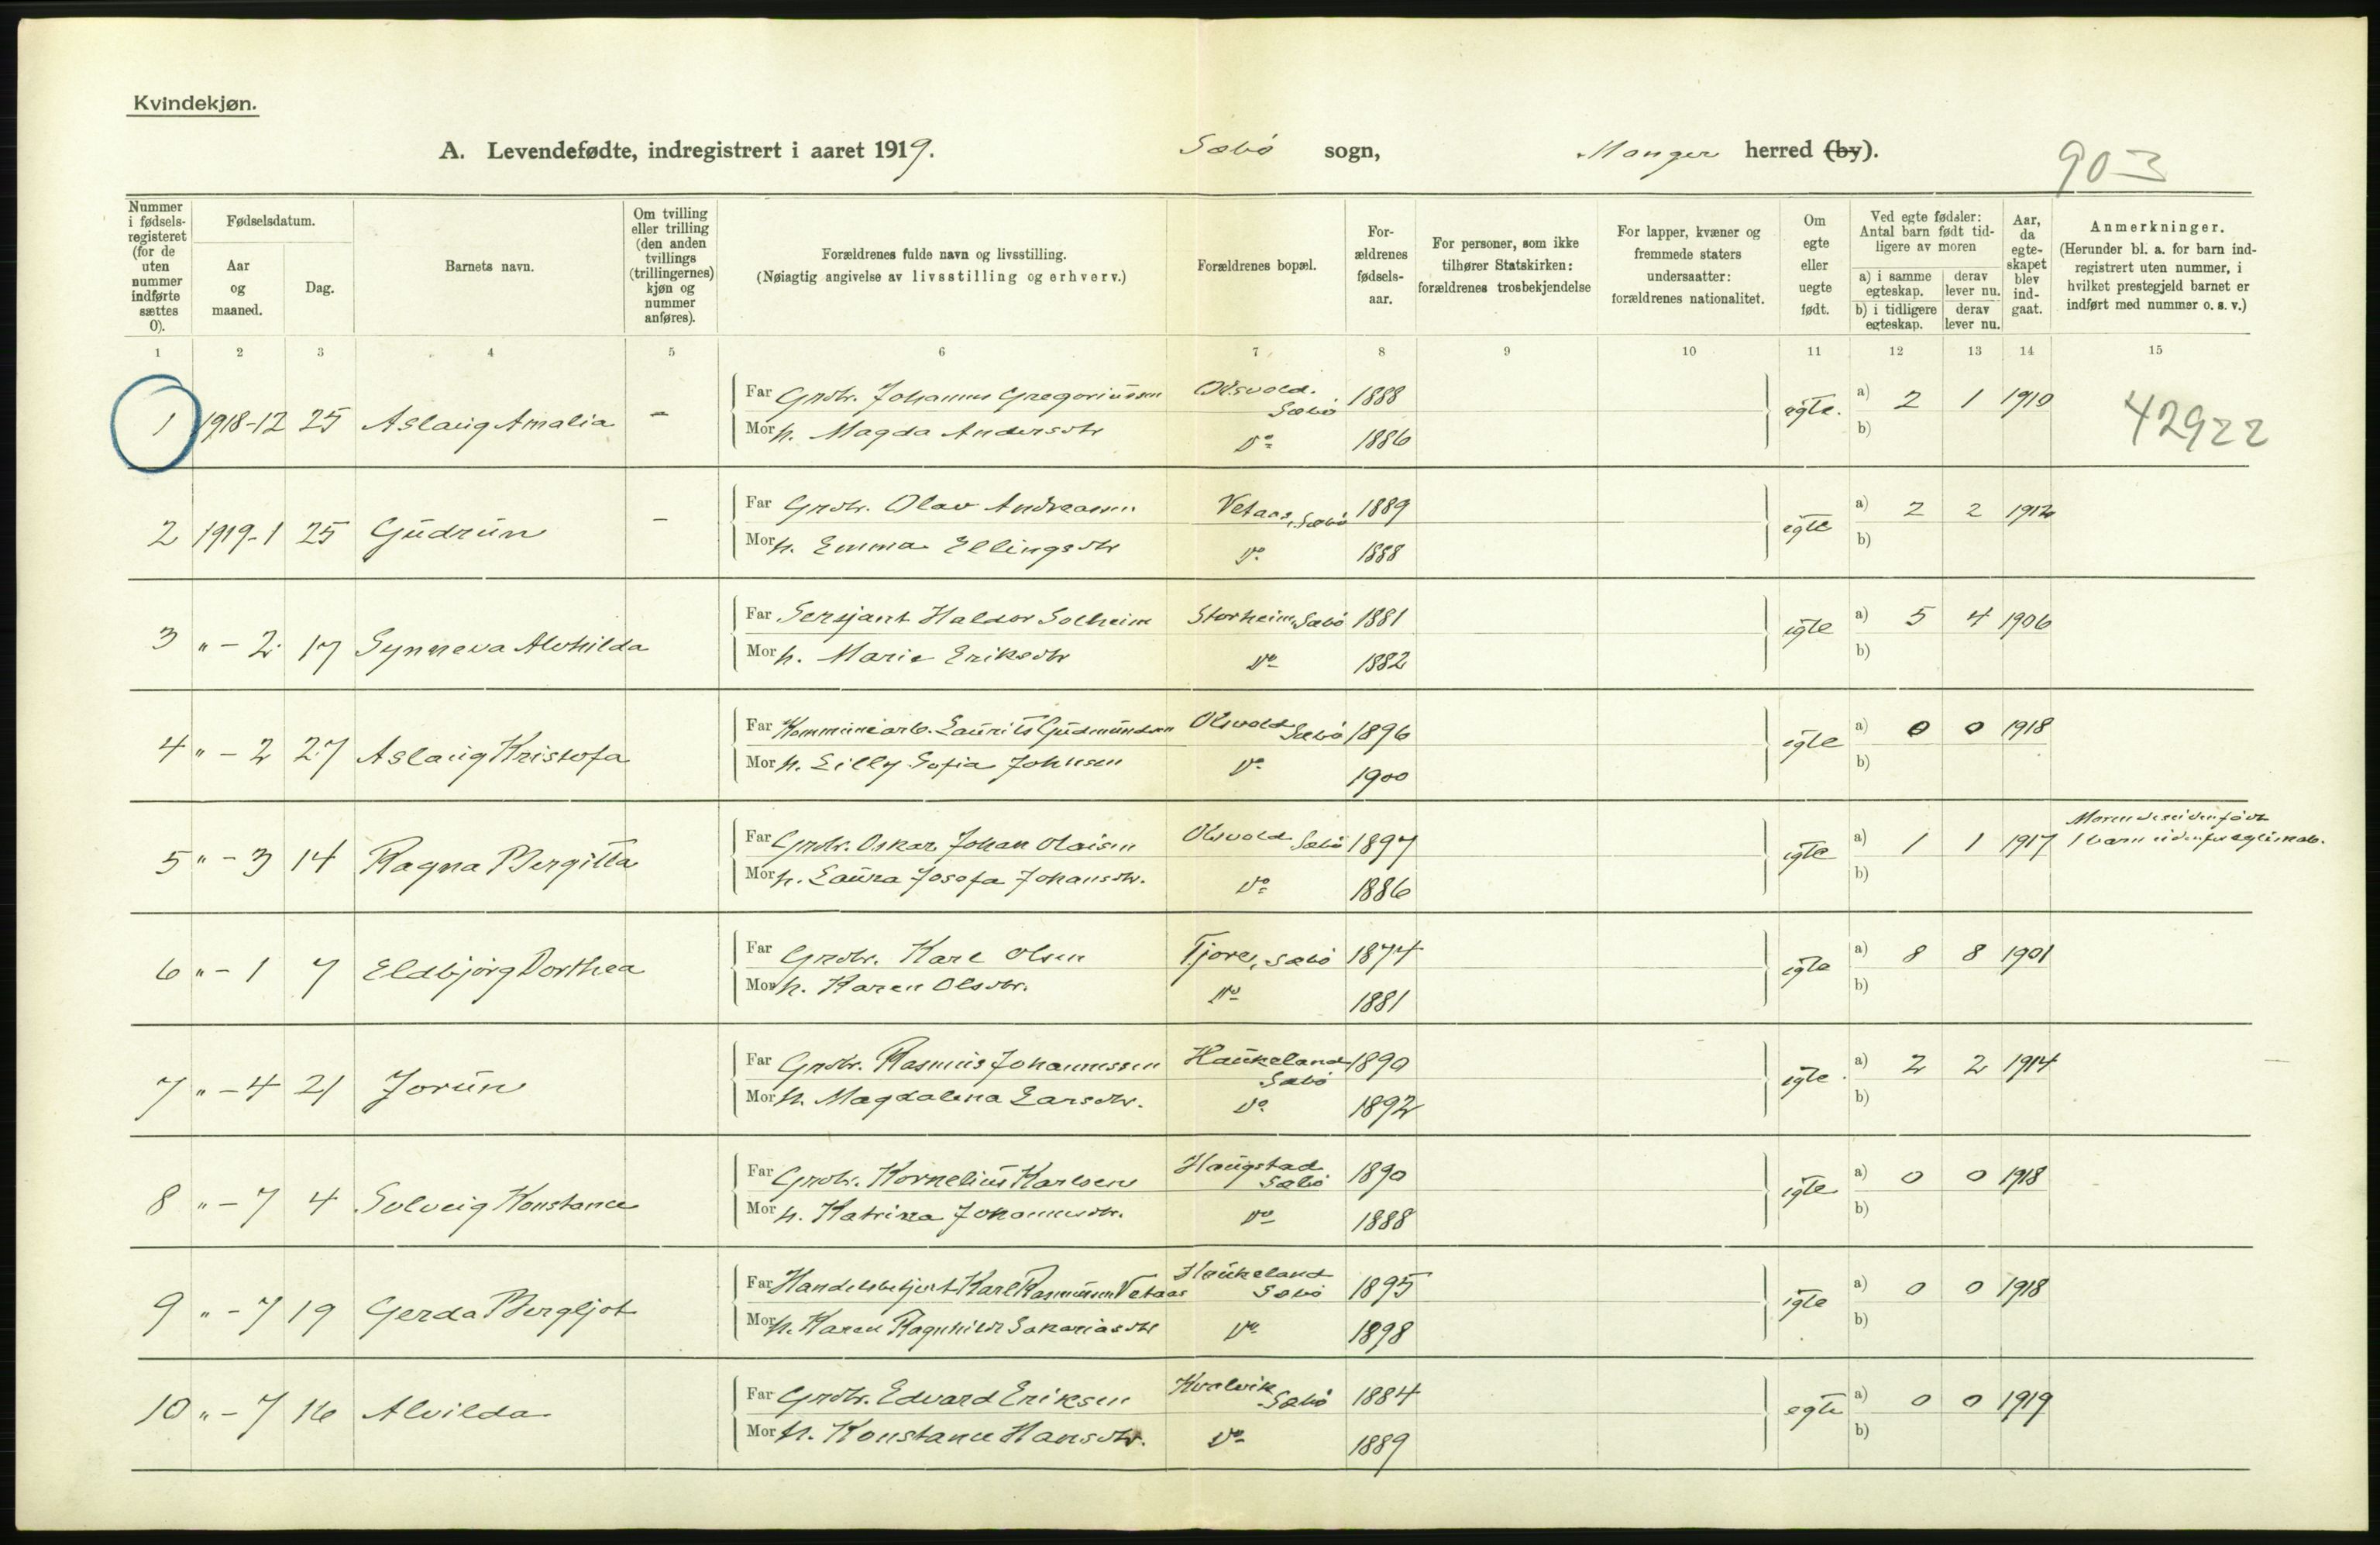 Kvindekjøn.
A. Levendefødte, indregistrert i aaret 1919. Sæbö sogn, Manger herred (by).
903
Nummer i fødsels-registeret (for de uten nummer indførte sættes 0).
Fødselsdatum.
Aar og maaned.
Dag.
Barnets navn.
Om tvilling eller trilling (den anden tvillings (trillingernes) kjøn og nummer anføres).
Forældrenes fulde navn og livsstilling.
(Nøiagtig angivelse av livsstilling og erhverv.)
Forældrenes bopæl.
For-ældrenes fødsels-aar.
For personer, som ikke tilhører Statskirken: forældrenes trosbekjendelse
For lapper, kvæner og fremmede staters undersaatter: forældrenes nationalitet.
Om egte eller uegte født.
Ved egte fødsler: Antal barn født tid-ligere av moren
a) i samme egteskap.
derav lever nu.
b) i tidligere egteskap.
derav lever nu.
Aar, da egte-skapet blev ind-gaat.
Anmerkninger.
(Herunder bl. a. for barn ind-registrert uten nummer, i hvilket prestegjeld barnet er indført med nummer o. s. v.)
1 2 3 4 5 6 7 8 9 10 11 12 13 14 15
1 1918-12 25 Aslaug Amalia - Far Grdbr. Johannes Gregoriussen Olsvold. Sæbö 1888 egte. a) 2 1 1910 42922
Mor h. Magda Andersdtr Do 1886 b)
2 1919-1 25 Gudrun - Far Grdbr. Olav Andreassen Vetaas, Sæbö 1889 egte a) 2 2 1912
Mor h. Emma Ellingsdtr Do 1888 b)
3 " - 2 17 Synneva Alvhilda Far Sersjant Haldor Solheim Storheim, Sæbö 1881 egte a) 5 4 1906
Mor h. Marie Eriksdtr Do 1882 b)
4 " - 2 27 Aslaug Kristofa Far Kommunearb. Laurits Gudmundsen Olsvold Sæbö 1896 egte a) 0 0 1918
Mor h. Lilly Sofia Johnsen Do 1900 b)
5 " - 3 14 Ragna Bergitta Far Grdbr. Oskar Johan Olaisen Olsvold Sæbö 1897 egte a) 1 1 1917 Moren desuden født 1 barn udenfor egteskab.
Mor h. Laura Josefa Johansdtr. Do 1886 b)
6 " - 1 7 Eldbjörg Dorthea Far Grdbr. Karl Olsen Tjore, Sæbö 1874 egte a) 8 8 1901
Mor h. Karen Olsdtr. Do 1881 b)
7 " - 4 21 Jorun Far Grdbr. Rasmus Johannessen Haukeland Sæbö 1890 egte a) 2 2 1914
Mor h. Magdalena Larsdtr. Do 1892 b)
8 " - 7 4 Solveig Konstance Far Grdbr. Kornelius Karlsen Haugstad Sæbö 1890 egte a) 0 0 1918
Mor h. Katrina Johannesdtr. Do 1888 b)
9 " - 7 19 Gerda Bergljot Far Handelsbetjent Karl Rasmussen Vetaas Haukeland Sæbö 1895 egte a) 0 0 1918
Mor h. Karen Ragnhild Sakariasdtr Do 1898 b)
10 " - 7 16 Alvilda Far Grdbr. Edvard Eriksen Kvalvik Sæbö 1884 egte a) 0 0 1919
Mor h. Konstance Hansdtr. Do 1889 b)